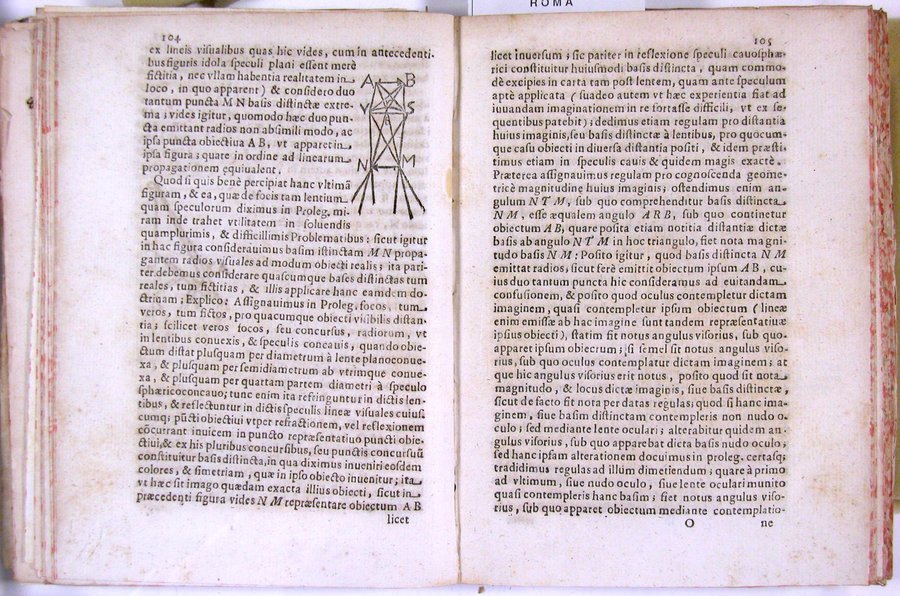 ROMA
104
ex lineis visualibus quas hic vides, cum in antecedenti-
bus figuris idola speculi plani essent merè
fictitia, nec vllam habentia realitatem in
loco, in quo apparent) & considero duo
tantum puncta M N basis distinctæ extre-
ma; vides igitur, quomodo hæc duo pun-
cta emittant radios non absimili modo, ac
ipsa puncta obiectiua A B, vt apparet in
ipsa figura; quare in ordine ad linearum
propagationem equiualent.
A B
Y S
N M
Quod si quis benè percipiat hanc vltimã
figuram, & ea, quæ de focis tam lentium
quam speculorum diximus in Proleg. mi-
ram inde trahet vtilitatem in soluendis
quamplurimis, & difficillimis Problematibus: sicut igitur
in hac figura considerauimus basim istinctam M N propa-
gantem radios visuales ad modum obiecti realis; ita pari-
ter debemus considerare quascumque bases distinctas tum
reales, tum fictitias, & illis applicare hanc eamdem do-
ctrinam; Explico: Assignauimus in Proleg. focos, tum
veros, tum fictos, pro quacumque obiecti visibilis distan-
tia; scilicet veros focos, seu concursus, radiorum, vt
in lentibus conuexis, & speculis concauis, quando obie-
ctum distat plusquam per diametrum à lente planoconue-
xa, & plusquam per semidiametrum ab vtrimque conue-
xa, & plusquam per quartam partem diametri à speculo
sphæricoconcauo; tunc enim ita refringuntur in dictis len-
tibus, & reflectuntur in dictis speculis lineæ visuales cuiusc
cumq; pũcti obiectiui vtper refractionem, vel reflexionem
cõcurrant inuicem in puncto repræsentatiuo puncti obie-
ctiui, & ex his pluribus concursibus, seu punctis concursuũ
constituitur basis distincta, in qua diximus inueniri eosdem
colores, & simetriam, quæ in ipso obiecto inuenitur; ita
vt hæc sit imago quædam exacta illius obiecti, sicut in
præcedenti figura vides N M repræsentare obiectum A B
licet
105
licet inuersum; sic pariter in reflexione speculi cauosphæ-
rici constituitur huiusmodi basis distincta, quam commo-
dè excipies in carta tam post lentem, quam ante speculum
aptè applicata (suadeo autem vt hæc experientia fiat ad
iuuandam imaginationem in re fortasse difficili, vt ex se-
quentibus patebit); dedimus etiam regulam pro distantia
huius imaginis, seu basis distinctæ à lentibus, pro quocum-
que casu obiecti in diuersa distantia positi, & idem præsti-
timus etiam in speculis cauis & quidem magis exactè.
Præterea assignauimus regulam pro cognoscenda geome-
tricè magnitudine huius imaginis; ostendimus enim an-
gulum N T M, sub quo comprehenditur basis distincta
N M, esse æqualem angulo A R B, sub quo continetur
obiectum A B, quare posita etiam notitia distantiæ dictæ
basis ab angulo N T M in hoc triangulo, fiet nota magni-
tudo basis N M: Posito igitur, quod basis distincta N M
emittat radios, sicut ferè emittit obiectum ipsum A B, cu-
ius duo tantum puncta hic consideramus ad euitandam
confusionem, & posito quod oculus contempletur dictam
imaginem, quasi contempletur ipsum obiectum (lineæ
enim emissæ ab hac imagine sunt tandem repræsentatiuæ
ipsius obiecti), statim fit notus angulus visorius, sub quo
apparet ipsum obiectum; si semel sit notus angulus viso-
rius, sub quo oculus contemplatur dictam imaginem; at-
que hic angulus visorius erit notus, posito quod sit nota
magnitudo, & locus dictæ imaginis, siue basis distinctæ,
sicut de facto fit nota per datas regulas; quod si hanc ima-
ginem, siue basim distinctam contempleris non nudo o-
culo; sed mediante lente oculari; alterabitur quidem an-
gulus visorius, sub quo apparebat dicta basis nudo oculo;
sed hanc ipsam alterationem docuimus in proleg. certasq;
tradidimus regulas ad illum dimetiendum; quare à primo
ad vltimum, siue nudo oculo, siue lente oculari munito
quasi contempleris hanc basim; fiet notus angulus viso-
rius, sub quo apparet obiectum mediante contemplatio-
O ne